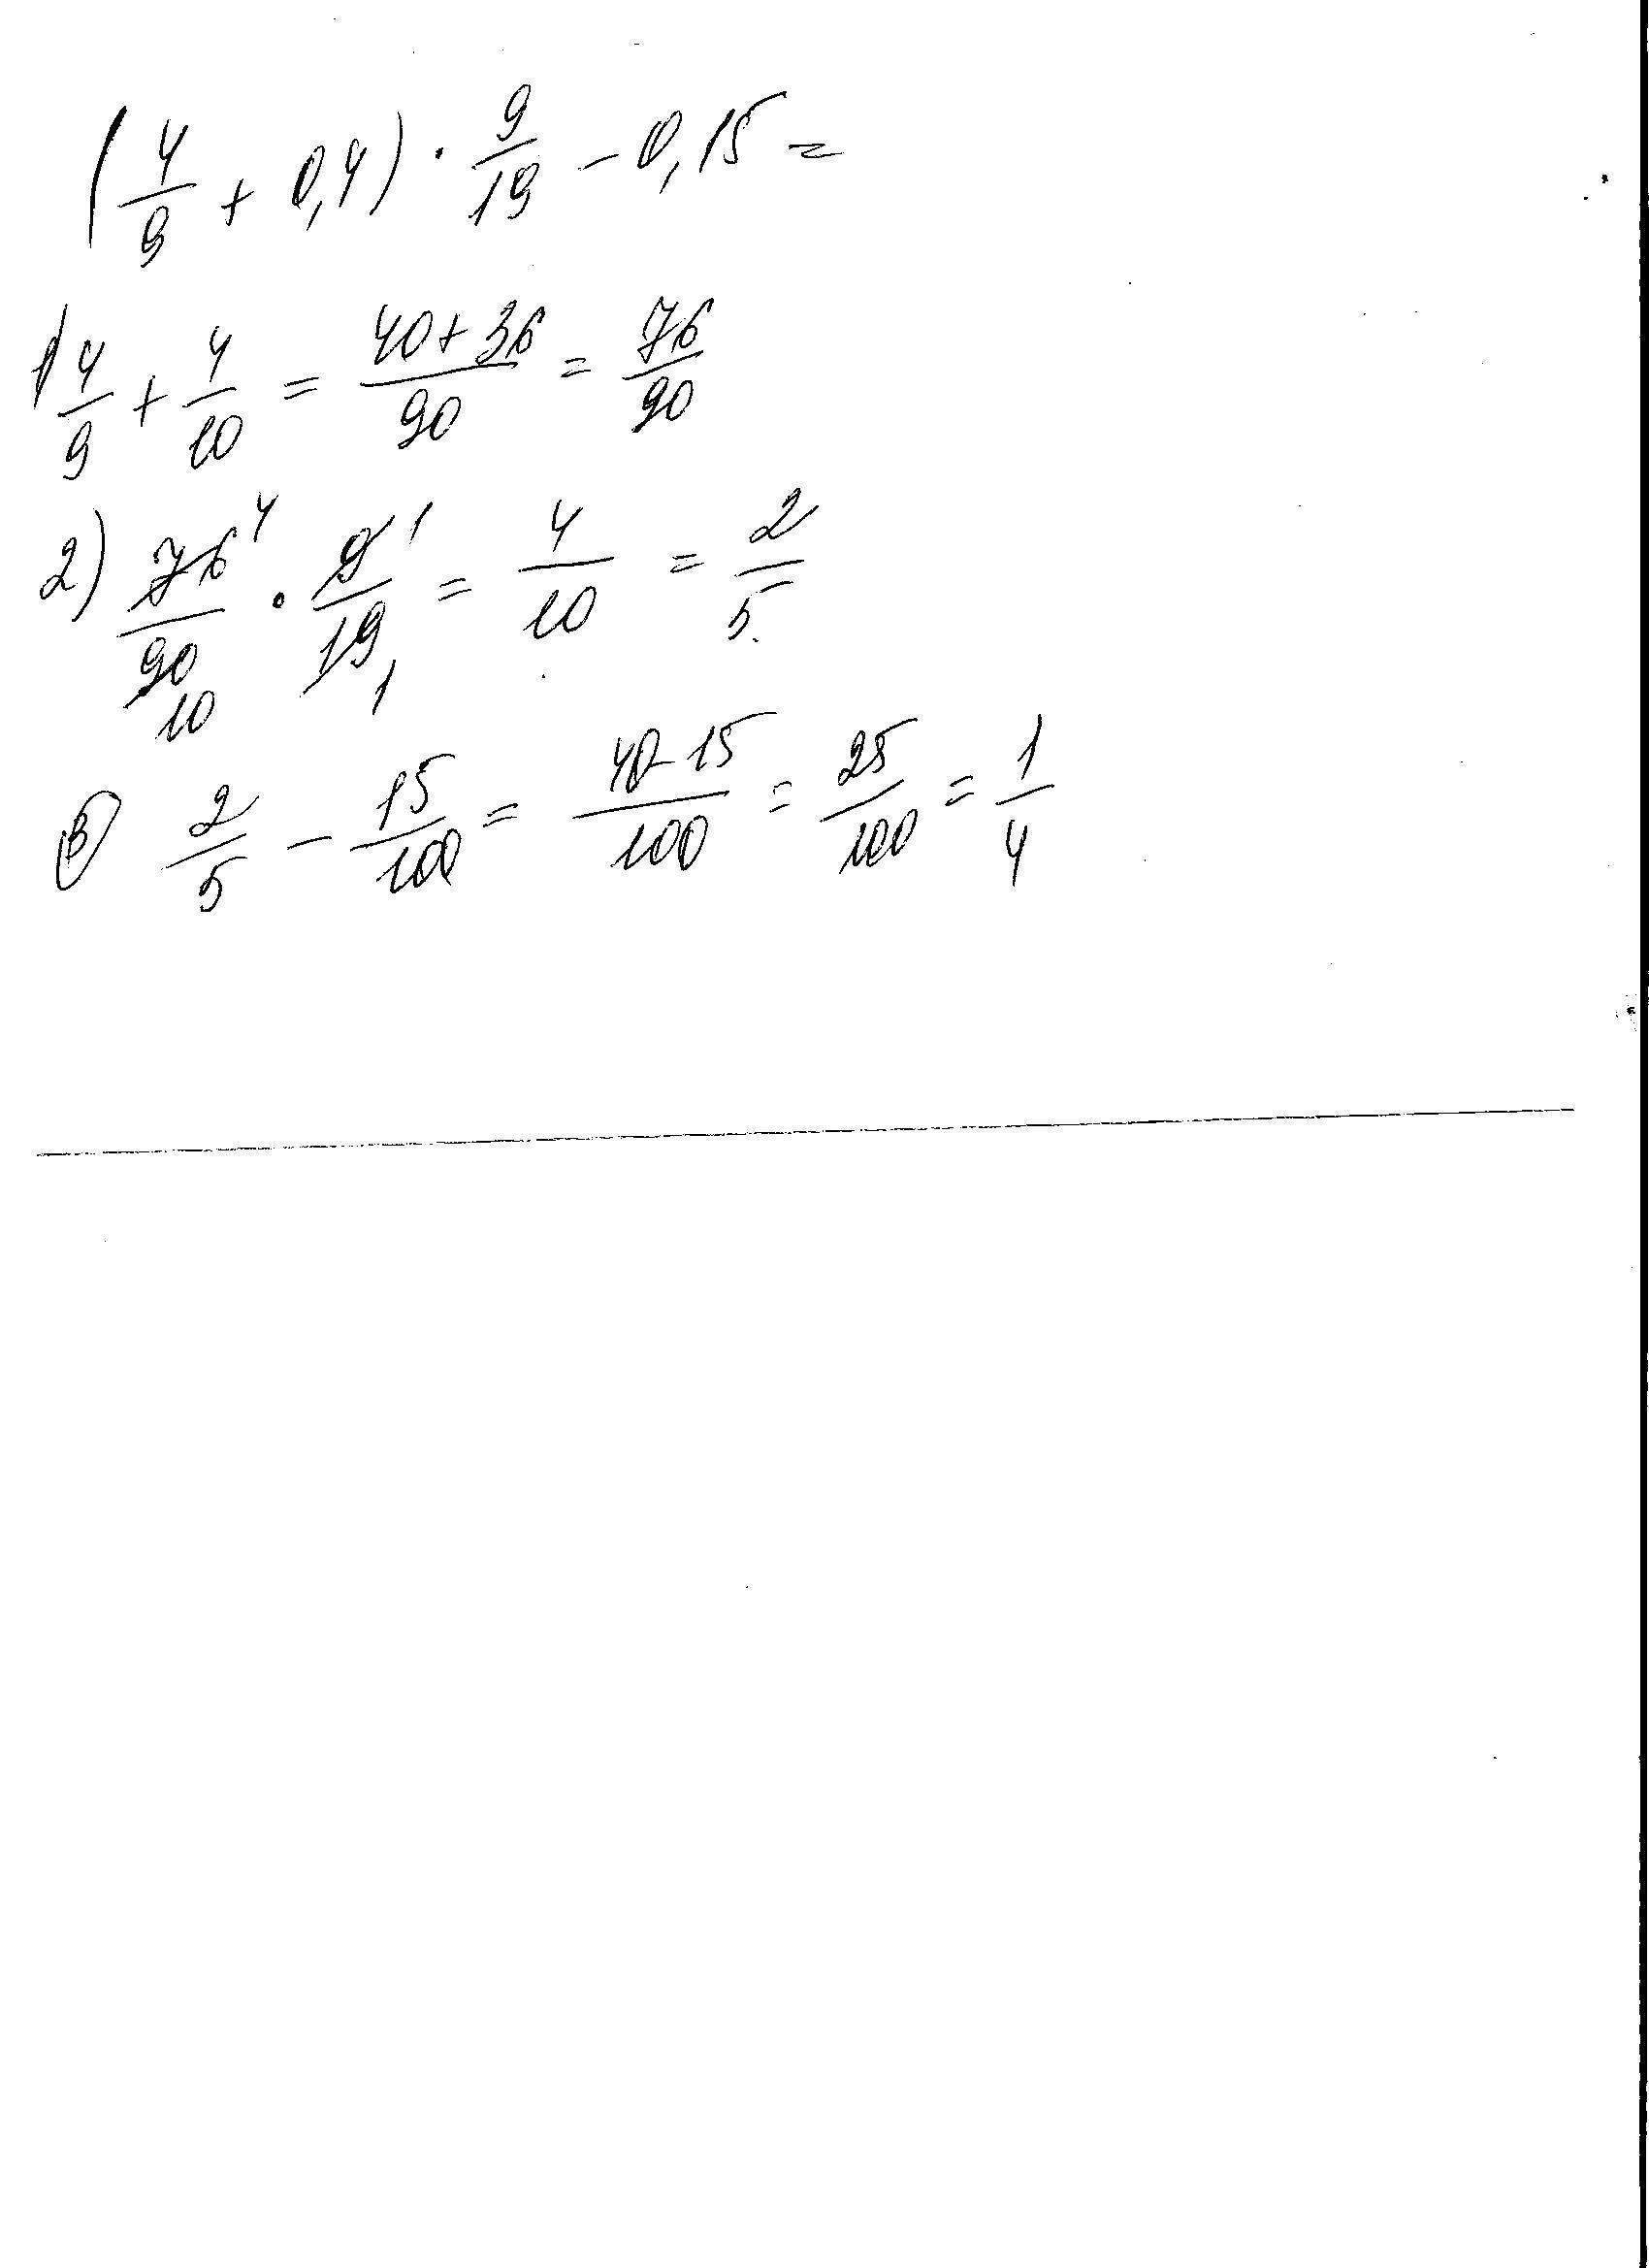 (4/9 + 0,4) · 9/19 - 0,15 =
1) 4/9 + 4/10 = (40+36)/90 = 76/90
2) 76⁴/90₁₀ · 9¹/19₁ = 4/10 = 2/5
3) 2/5 - 15/100 = (40-15)/100 = 25/100 = 1/4